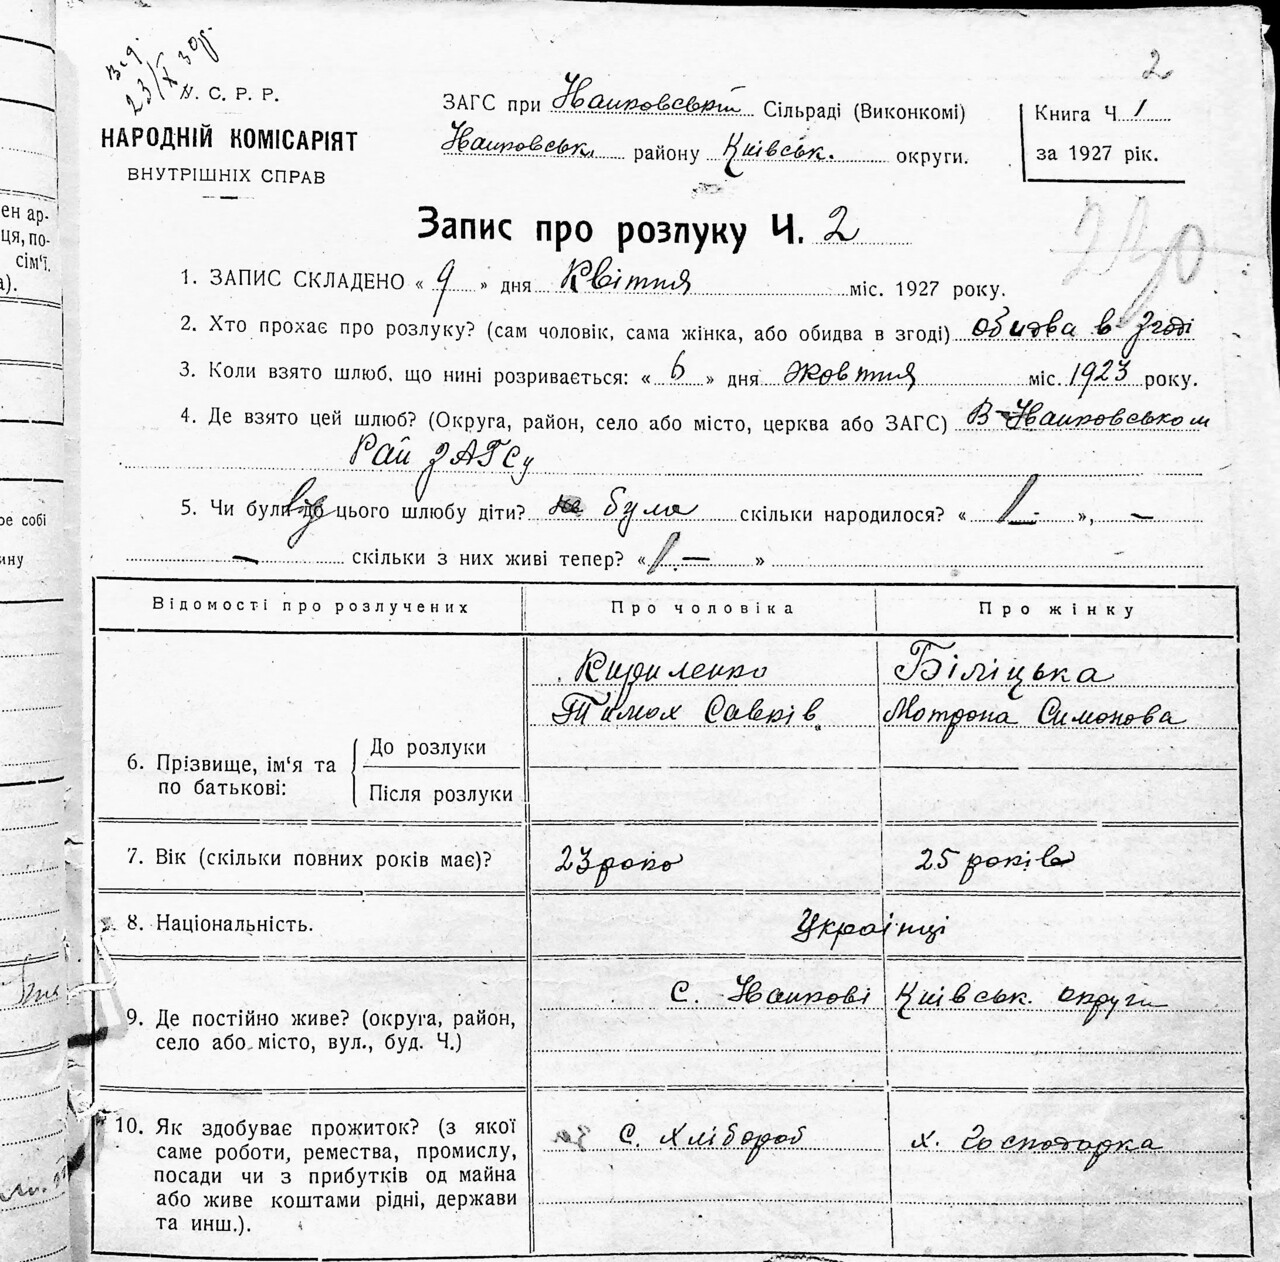 2
від
23/X 30р.
У. С. Р. Р.
НАРОДНІЙ КОМІСАРІЯТ
ВНУТРІШНІХ СПРАВ
ЗАГС при Наиковській Сільраді (Виконкомі)
Наиковськ. району Київськ. округи.
Книга Ч 1
за 1927 рік.
Запис про розлуку Ч. 2
1. ЗАПИС СКЛАДЕНО « 9 » дня Квітня міс. 1927 року.
2. Хто прохає про розлуку? (сам чоловік, сама жінка, або обидва в згоді) обидва в згоді
3. Коли взято шлюб, що нині розривається: « 6 » дня Жовтня міс. 1923 року.
4. Де взято цей шлюб? (Округа, район, село або місто, церква або ЗАГС) В Наиковськом
Рай ЗАГСу
5. Чи були до цього шлюбу діти? була скільки народилося? « 1 – », –
– скільки з них живі тепер? « 1. – »
Відомості про розлучених Про чоловіка Про жінку
Кириленко Біліцька
Тимох Савків Мотрона Симонова
6. Прізвище, ім'я та по батькові: До розлуки
Після розлуки
7. Вік (скільки повних років має)? 23 роко 25 років
8. Національність. Українці
9. Де постійно живе? (округа, район, село або місто, вул., буд. Ч.) С. Наикові Київськ. округи
10. Як здобуває прожиток? (з якої с. Хлібороб х. Господарка
саме роботи, ремества, промислу,
посади чи з прибутків од майна
або живе коштами рідні, держави
та инш.).
ен ар-
ця, по-
сім'ї.
а).
ре собі
ину